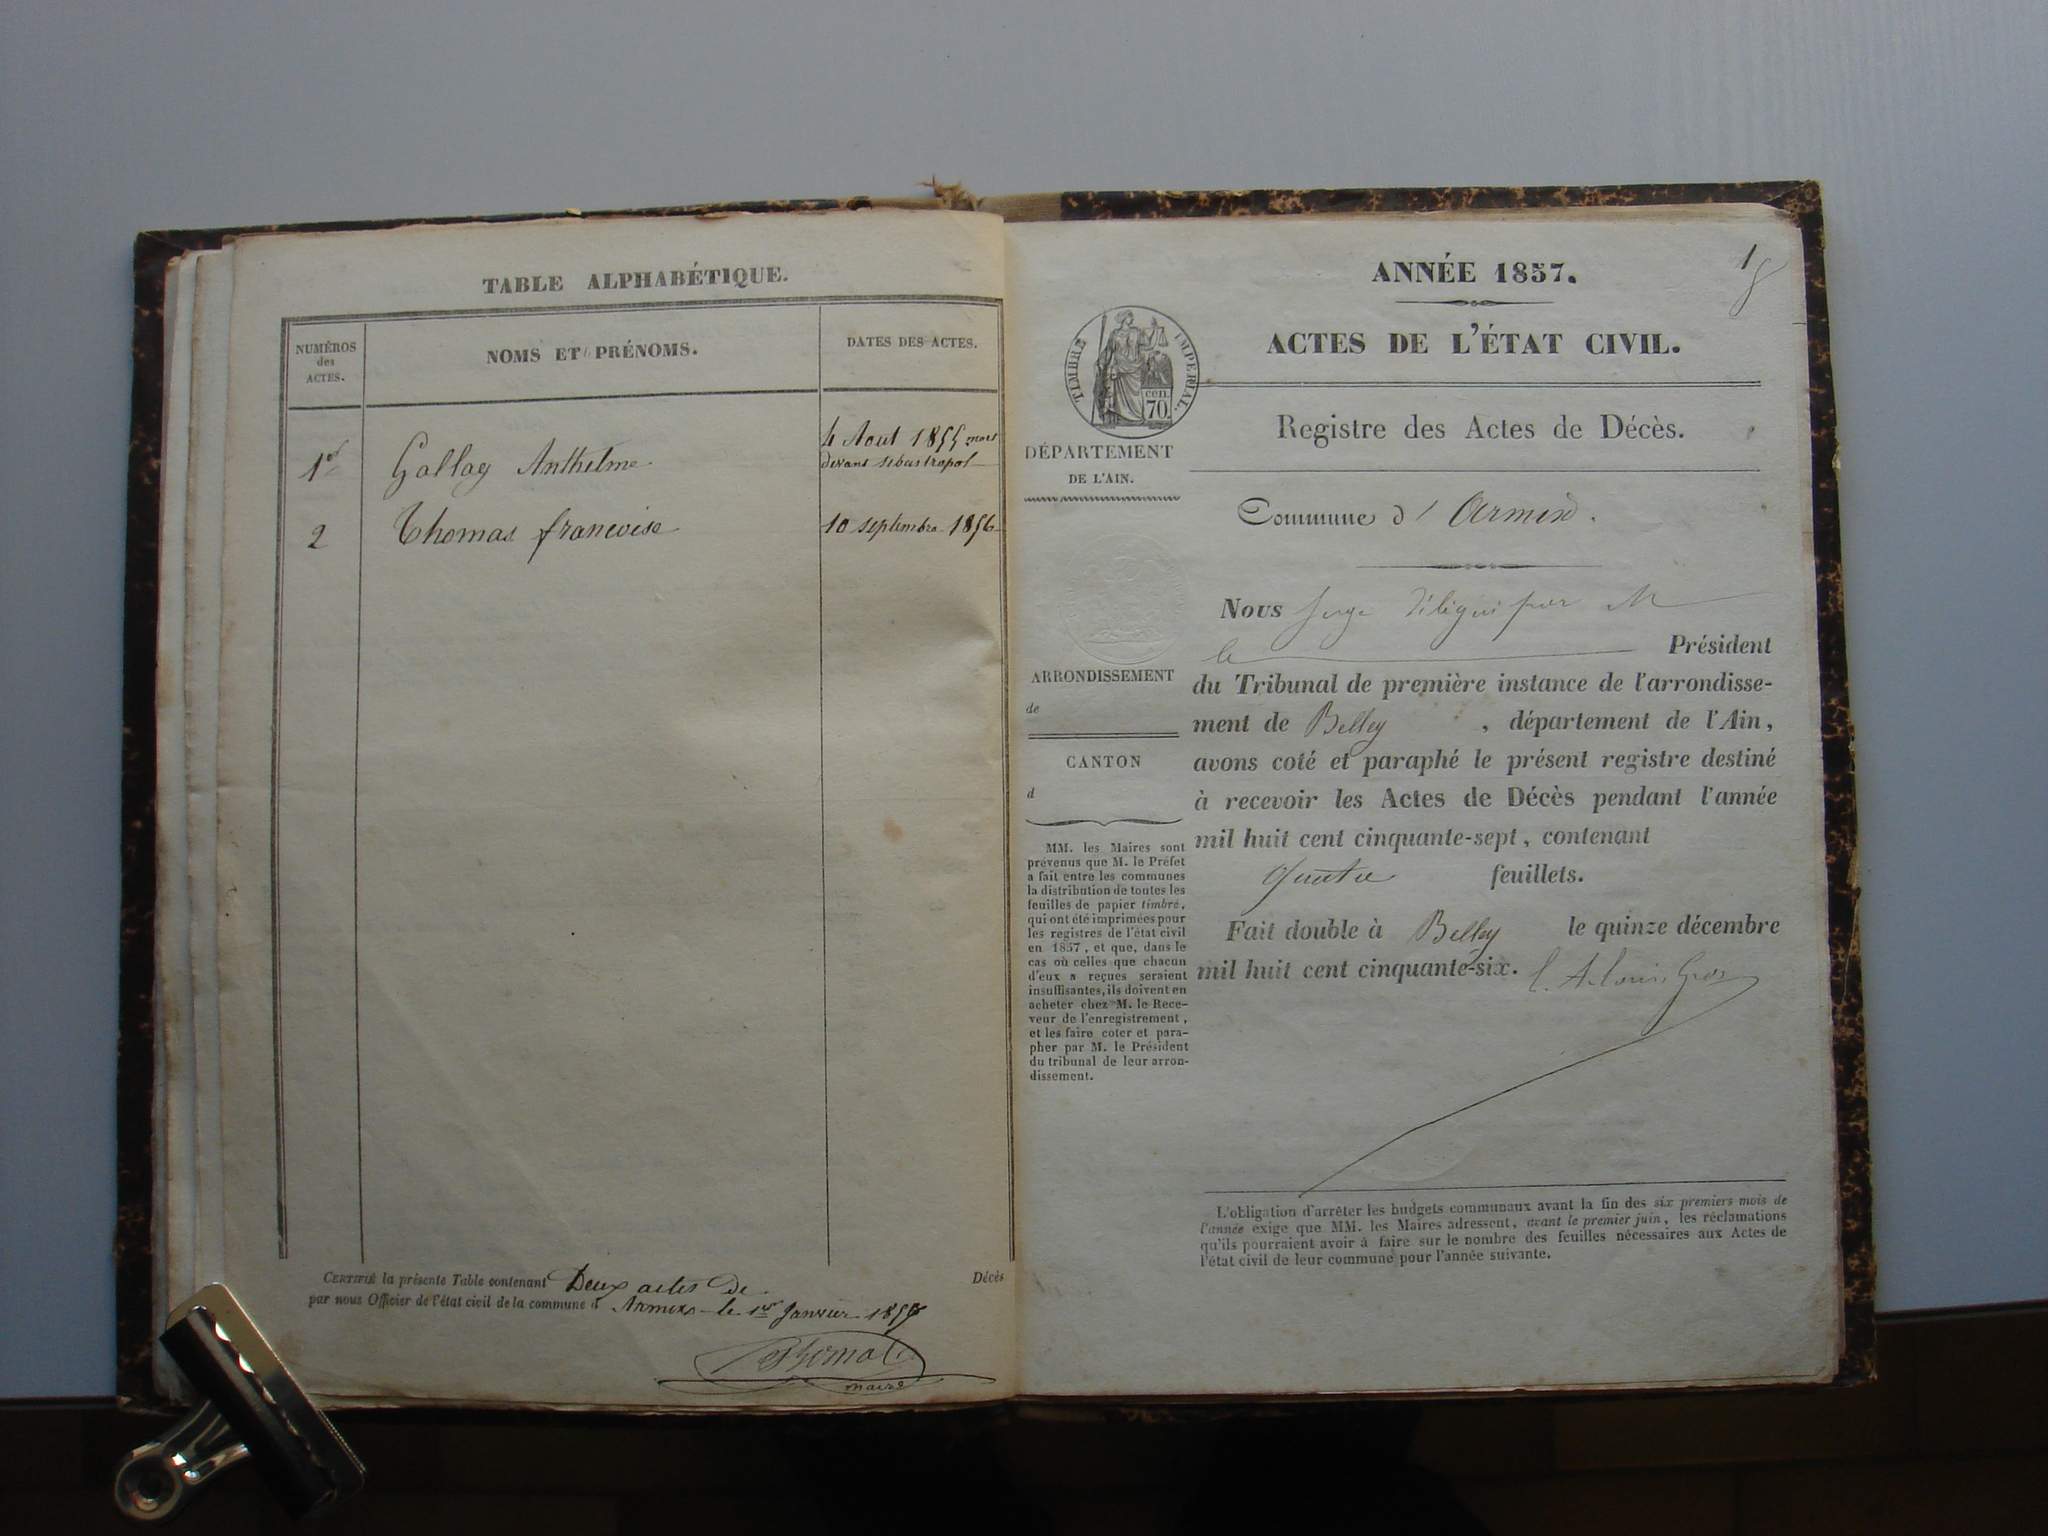 TABLE ALPHABÉTIQUE.
NUMÉROS
des
ACTES.
NOMS ET PRÉNOMS.
DATES DES ACTES.
1er
Gallay Anthelme
4 Aout 1855 mort
devant sebastropol
2
Thomas francoise
10 septembre 1856
CERTIFIÉ la présente Table contenant Deux actes de Décès
par nous Officier de l'état civil de la commune d Armix le 1er Janvier 1857
Thomas
maire
1
ANNÉE 1857.
ACTES DE L'ÉTAT CIVIL.
TIMBRE IMPERIAL.
cen.
70.
DÉPARTEMENT
DE L'AIN.
Registre des Actes de Décès.
Commune d'Armix.
ARRONDISSEMENT
de
CANTON
d
Nous Juge délégué par M
le Président
du Tribunal de première instance de l'arrondisse-
ment de Belley , département de l'Ain,
avons coté et paraphé le présent registre destiné
à recevoir les Actes de Décès pendant l'année
mil huit cent cinquante-sept, contenant
quatre feuillets.
Fait double à Belley le quinze décembre
mil huit cent cinquante-six.
MM. les Maires sont
prévenus que M. le Préfet
a fait entre les communes
la distribution de toutes les
feuilles de papier timbré,
qui ont été imprimées pour
les registres de l'état civil
en 1857, et que, dans le
cas où celles que chacun
d'eux a reçues seraient
insuffisantes, ils doivent en
acheter chez M. le Rece-
veur de l'enregistrement,
et les faire coter et para-
pher par M. le Président
du tribunal de leur arron-
dissement.
L'obligation d'arrêter les budgets communaux avant la fin des six premiers mois de
l'année exige que MM. les Maires adressent, avant le premier juin, les réclamations
qu'ils pourraient avoir à faire sur le nombre des feuilles nécessaires aux Actes de
l'état civil de leur commune pour l'année suivante.